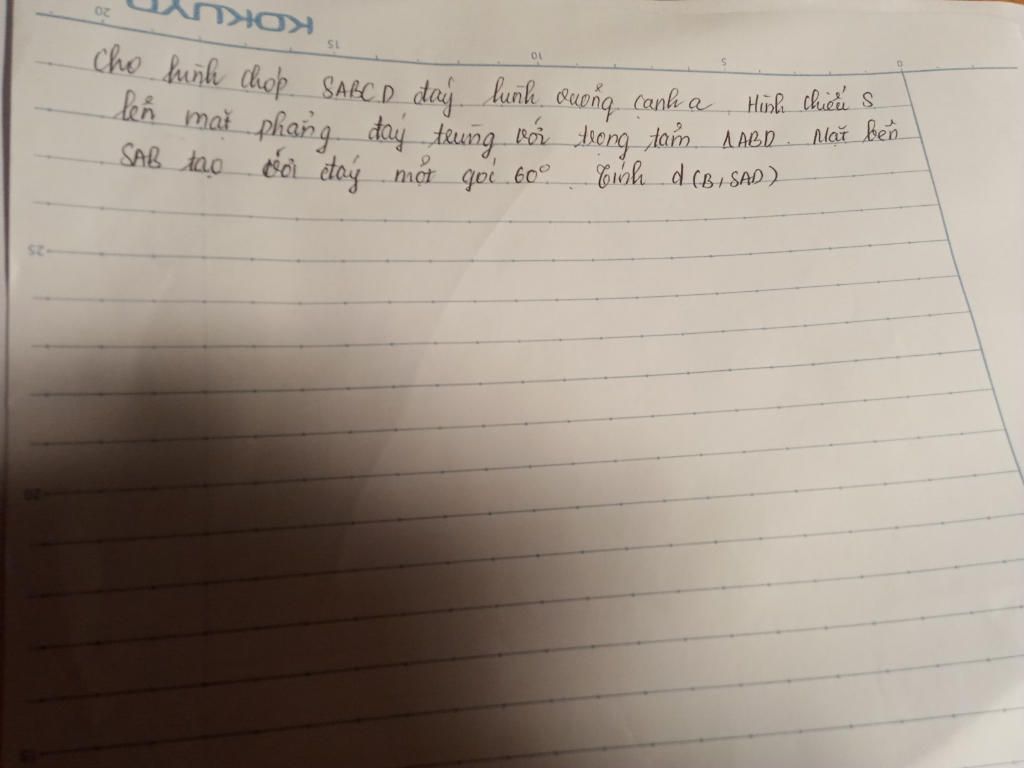 KOKUYO
20 15 10 5 0
Cho hình chóp SABCD đáy hình vuông cạnh a Hình chiếu S
lên mặt phẳng đáy trùng với trọng tâm ΔABD. Mặt bên
SAB tạo với đáy một gói 60°. Tính d(B, SAD)
25
20
15